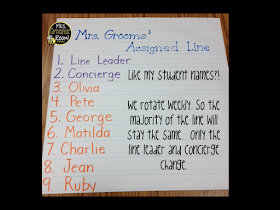 Mrs.
Grooms'
Room!
Mrs. Grooms'
Assigned Line
1. Line Leader
2. Concierge
3. Olivia
4. Pete
5. George
6. Matilda
7. Charlie
8. Jean
9. Ruby
Like my student names?!
We rotate weekly. So the
majority of the line will
stay the same. Only the
line leader and concierge
change.